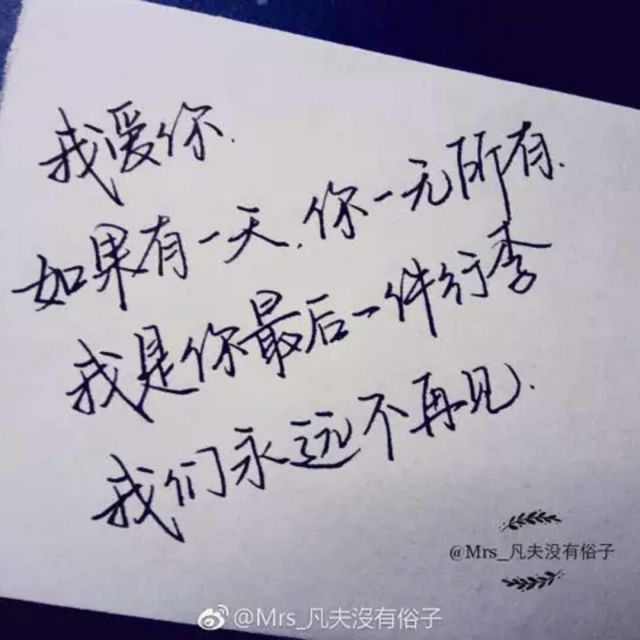 我爱你.
如果有一天,你一无所有.
我是你最后一件行李
我们永远不再见.
@Mrs_凡夫没有俗子
@Mrs_凡夫没有俗子